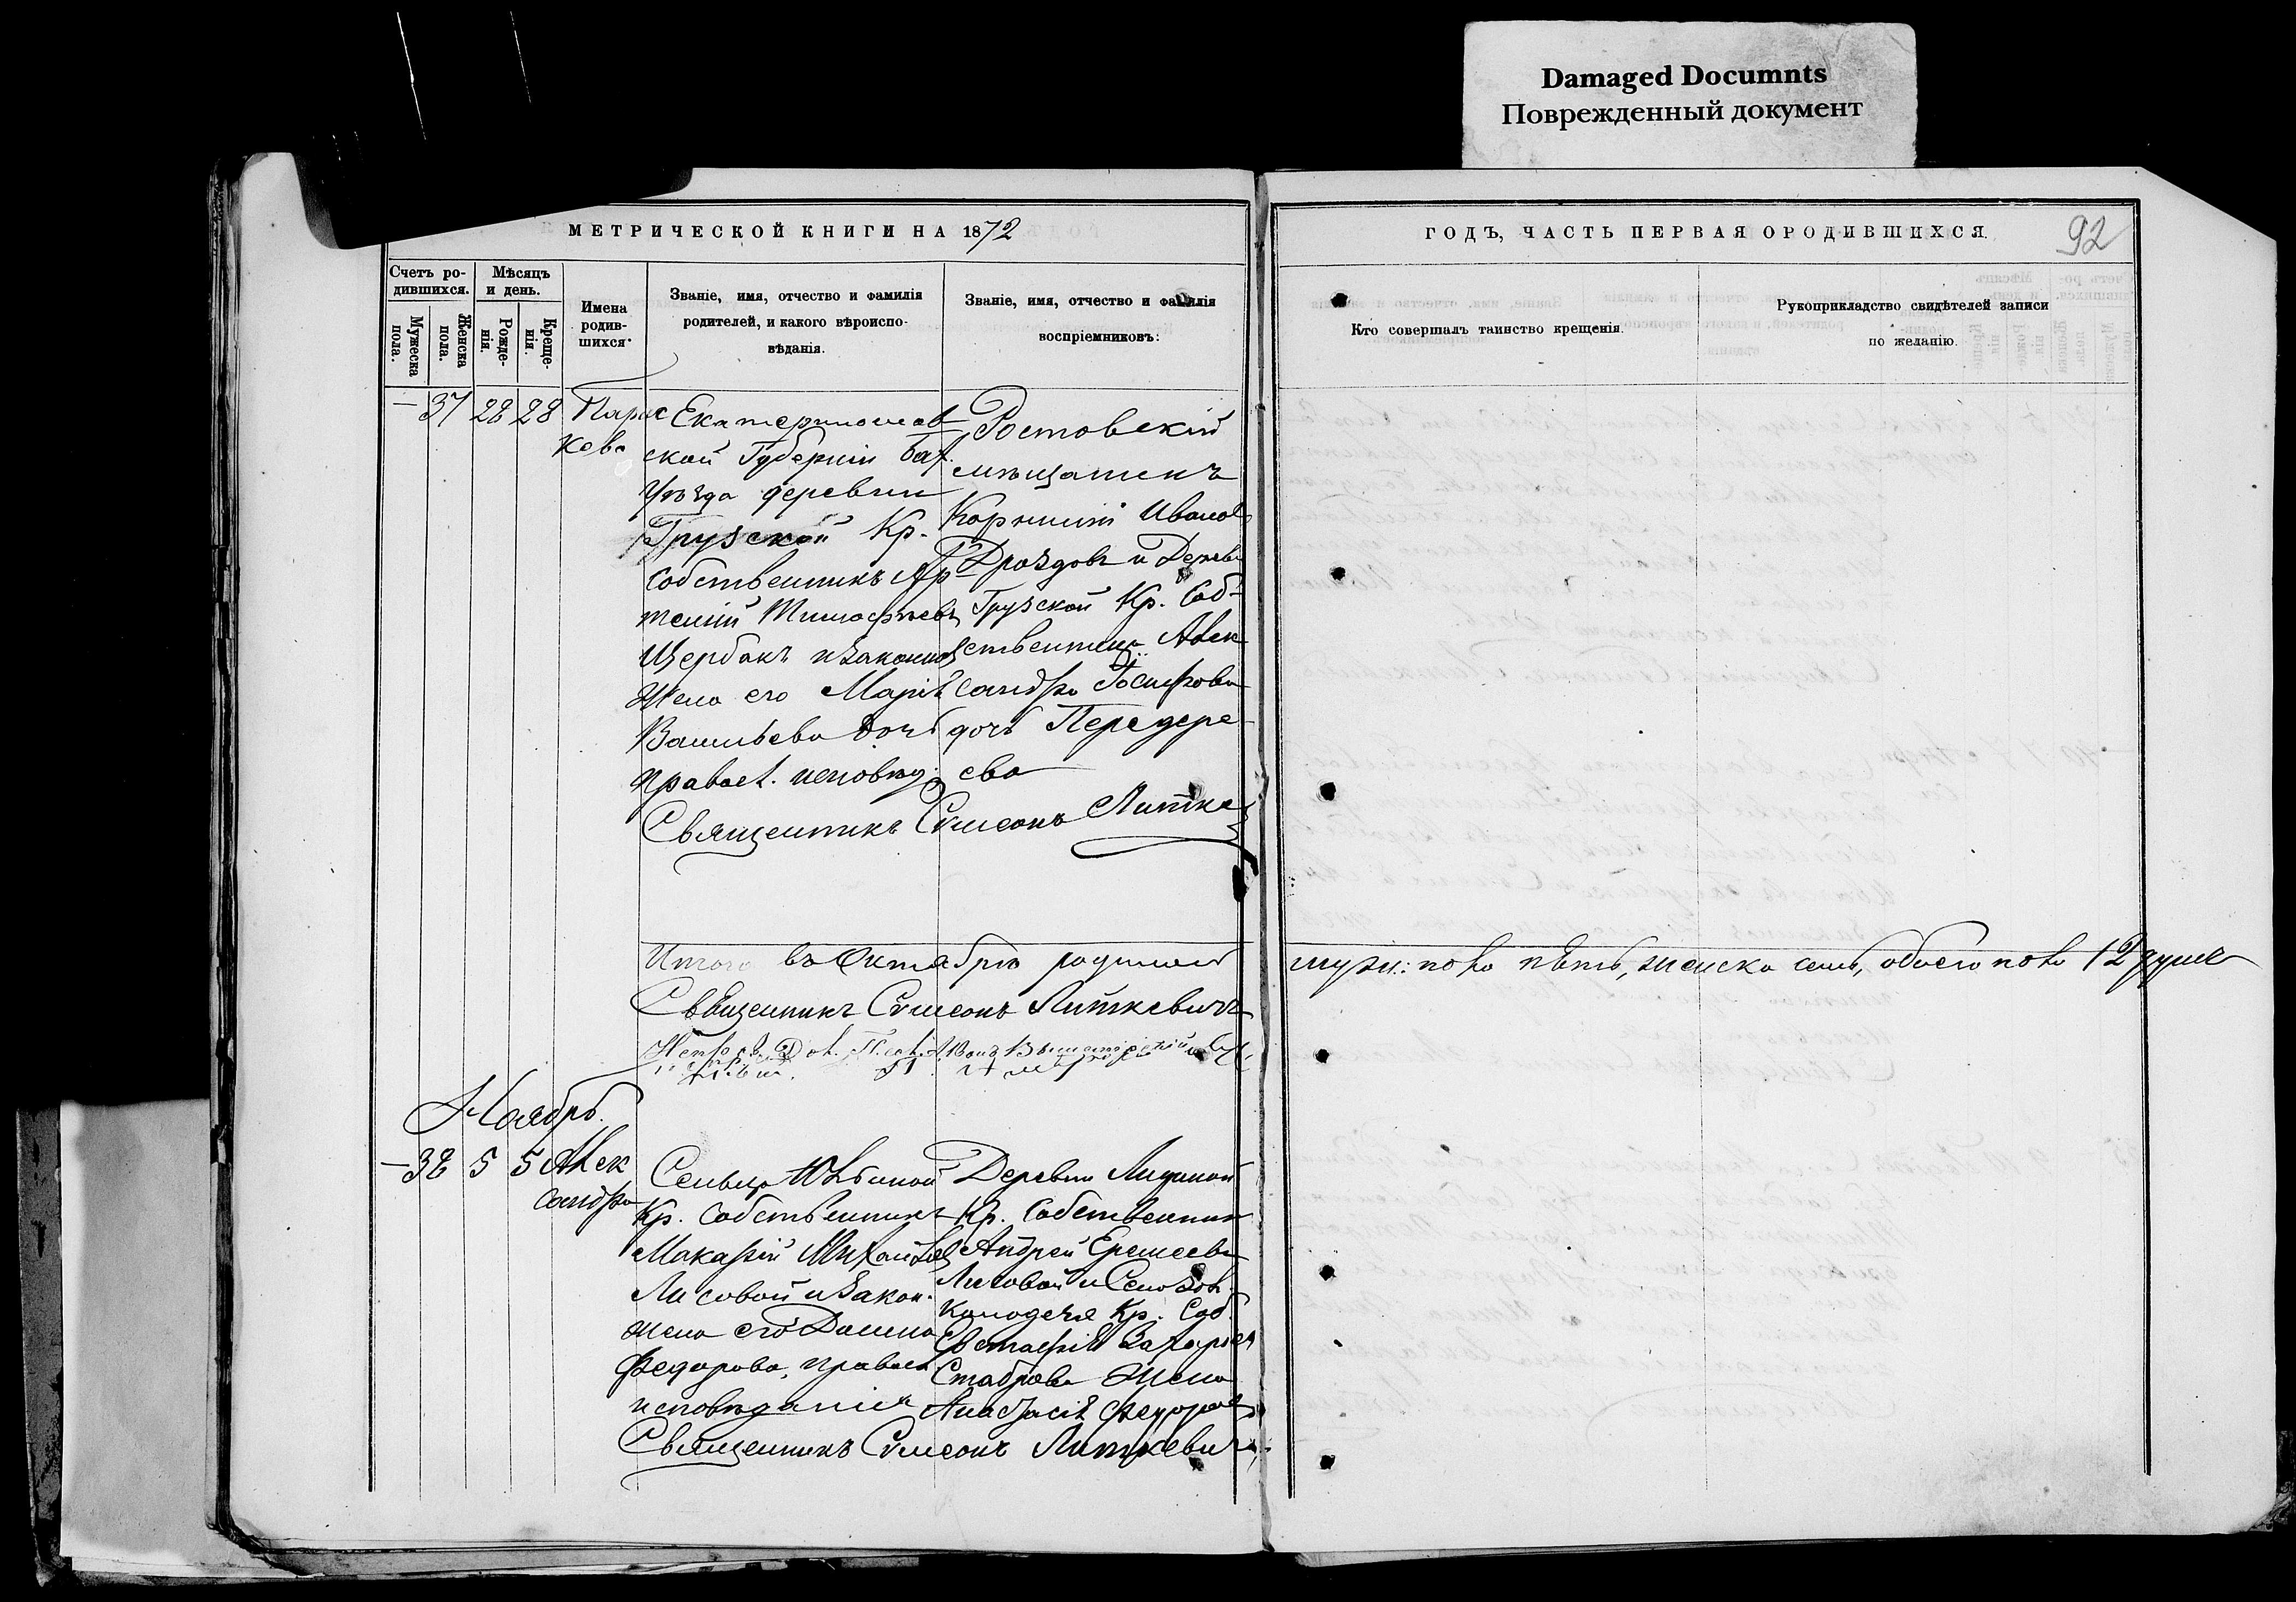 Damaged Documnts
Поврежденный документ
МЕТРИЧЕСКОЙ КНИГИ НА 1872
ГОДЪ, ЧАСТЬ ПЕРВАЯ ОРОДИВШИХСЯ.
92
Счетъ ро-
дившихся.
Мужеска
пола.
Женска
пола.
Мѣсяцъ
и день.
Рожде-
нія.
Креще-
нія.
Имена
родив-
шихся.
Званіе, имя, отчество и фамилія
родителей, и какого вѣроиспо-
вѣданія.
Званіе, имя, отчество и фамилія
воспріемниковъ:
Кто совершалъ таинство крещенія.
Рукоприкладство свидѣтелей записи
по желанію.
— 37 28 28
Парас
кева
Екатеринослав
ской Губерніи бах.
Уѣзда деревни
Грузской Кр.
Собственникъ Ар
темій Тимофѣевъ
Щербакъ и законная
Жена его Марія
Васильева дочь
правосл. исповѣд.
Ростовскій
мѣщанинъ
Корнилій Иванов
Дроздовъ и Деревни
Грузской Кр. Соб-
ственника Алек
сандра Іосифова
дочь Передере
ева
Священникъ Сѵмеонъ Литке
Итого въ Октябрѣ родилось
муж: пола пять, женска семь, обоего пола 12 душъ
Священникъ Сѵмеонъ Литкевичъ
Ноябрь.
— 38 5 5
Алек
сандра
Сельца Юльиной
Кр. Собственникъ
Макарій Михайлов
Лисовой и закон.
жена его Домна
Федорова, правосл.
исповѣданія
Деревни Лидиной
Кр. Собственник
Андрей Еремеевъ
Лисовой и Села
Колодезя Кр. Соб.
Евстафія Захарьев
Ставрова Жена
Анастасія Федорова
Священникъ Сѵмеонъ Литкевичъ